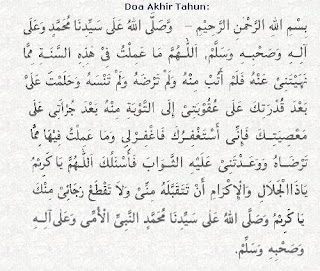 Doa Akhir Tahun:
بِسْمِ اللهِ الرَّحْمٰنِ الرَّحِيْمِ – وَصَلَّى اللهُ عَلَى سَيِّدِنَا مُحَمَّدٍ وَعَلَى
آلِهِ وَصَحْبِهِ وَسَلَّمْ. اَللّٰهُمَّ مَا عَمِلْتُ فِيْ هٰذِهِ السَّنَةِ مِمَّا
نَهَيْتَنِيْ عَنْهُ فَلَمْ أَتُبْ مِنْهُ وَلَمْ تَرْضَهُ وَلَمْ تَنْسَهُ وَحَلِمْتَ عَلَيَّ
بَعْدَ قُدْرَتِكَ عَلَى عُقُوْبَتِيْ إِلَى التَّوْبَةِ مِنْهُ بَعْدَ جُرْأَتِيْ عَلَى
مَعْصِيَتِكَ فَإِنِّى أَسْتَغْفِرُكَ فَاغْفِرْلِى وَمَا عَمِلْتُ فِيْهَا مِمَّا
تَرْضَاهُ وَوَعَدْتَنِيْ عَلَيْهِ الثَّوَابَ فَأَسْئَلُكَ اَللّٰهُمَّ يَا كَرِيْمُ
يَاذَا الْجَلَالِ وَالْإِكْرَامِ أَنْ تَتَقَبَّلَهُ مِنِّيْ وَلَا تَقْطَعْ رَجَائِيْ مِنْكَ
يَا كَرِيْمُ وَصَلَّى اللهُ عَلَى سَيِّدِنَا مُحَمَّدٍ النَّبِيِّ الْأُمِّي وَعَلَى آلِهِ
وَصَحْبِهِ وَسَلَّمْ.